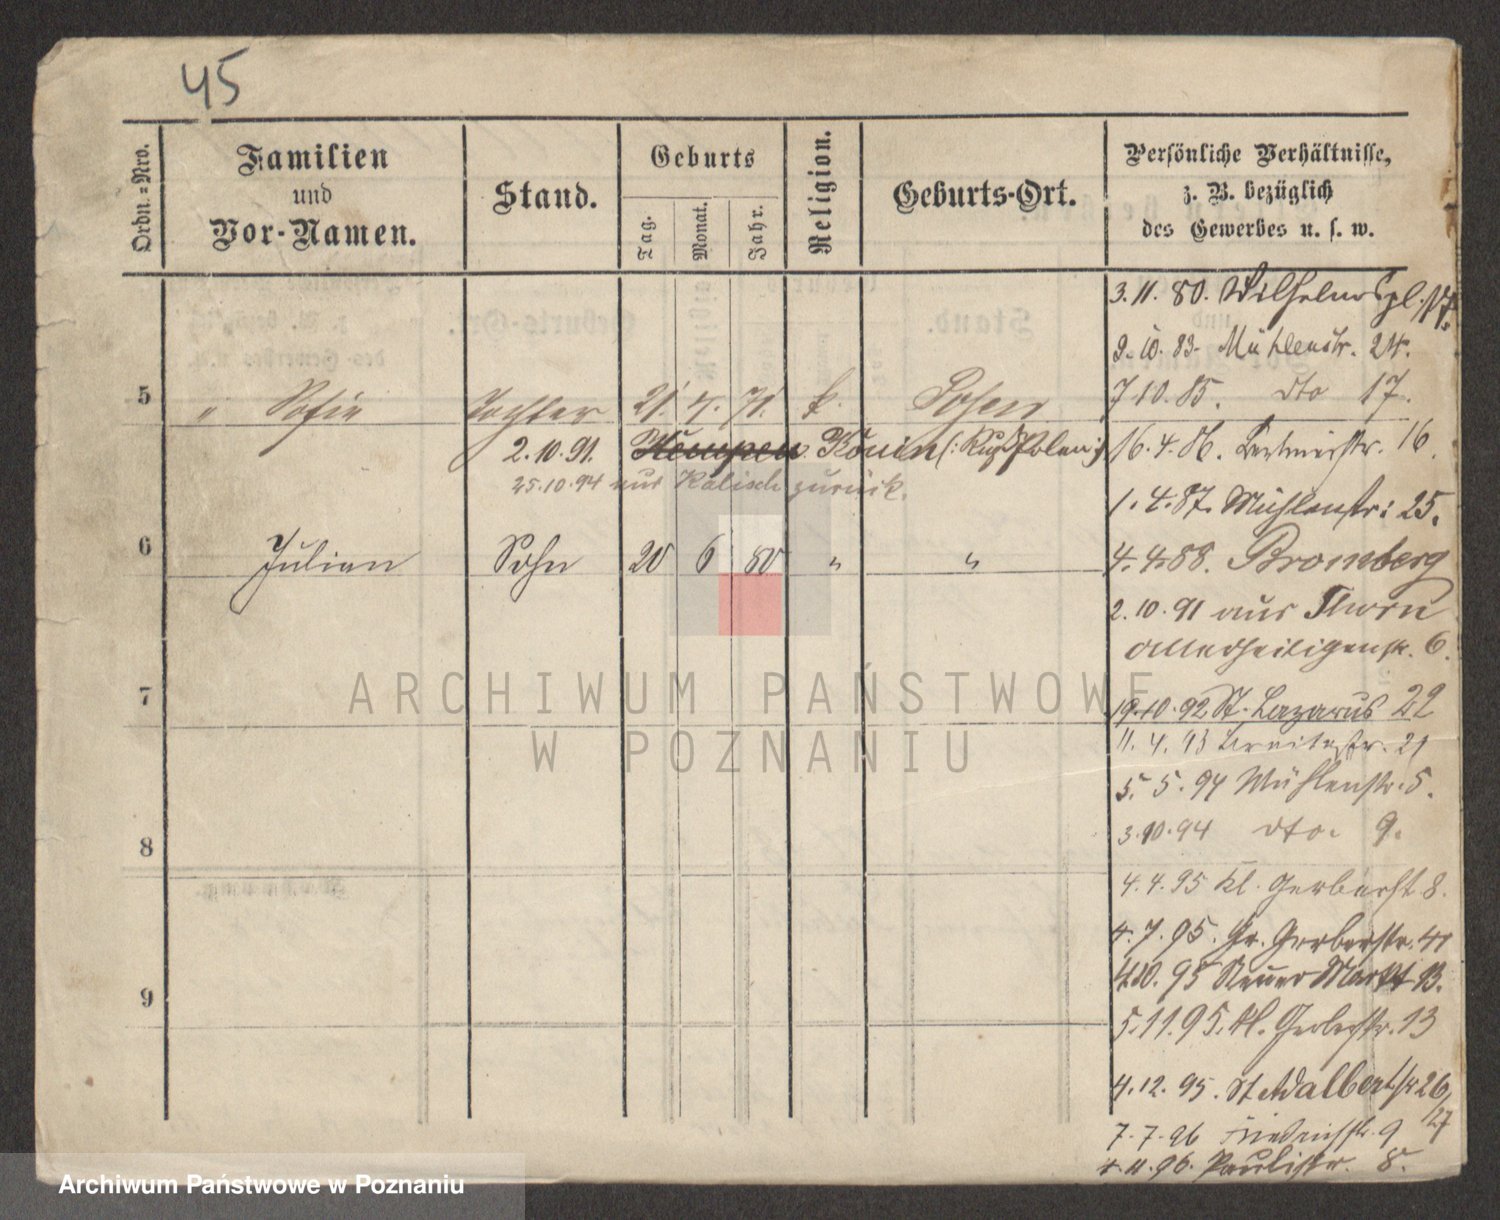 45
Ordn.=Nro.
Familien
und
Vor-Namen.
Stand.
Geburts
Tag.
Monat.
Jahr.
Religion.
Geburts-Ort.
Persönliche Verhältnisse,
z. B. bezüglich
des Gewerbes u. s. w.
3. 11. 80. Wilhelmspl. 17.
9. 10. 83. Mühlenstr. 24.
7 10. 85. dto 17.
5 " Sofie Tochter 21. 4. 71. k. Posen
2. 10. 91. Kempen Konin (: Russ Polen :)
16. 4. 86. 16.
25. 10. 94 aus Kalisch zurück.
1. 4. 87. Mühlenstr: 25.
6 Julian Sohn 20 6 80 " "
4. 4. 88. Bromberg
2. 10. 91 aus Thorn
Allerheiligenstr. 6.
7
19. 10. 92 St. Lazarus 22
11. 4. 93 Breitestr. 21
5. 5. 94 Mühlenstr. 5.
3. 10. 94 dto. 9.
8
4. 4. 95 Kl. Gerberst 8.
4. 7. 95. Gr. Gerberstr. 41
4. 10. 95 Neuer Markt 13.
9
5. 11. 95. Kl. Gerberstr. 13
4. 12. 95. St Adalbertstr 26/27
7. 7. 96 Friedrichstr. 9
11. 96. Paulistr. 8.
ARCHIWUM PAŃSTWOWE
W POZNANIU
Archiwum Państwowe w Poznaniu